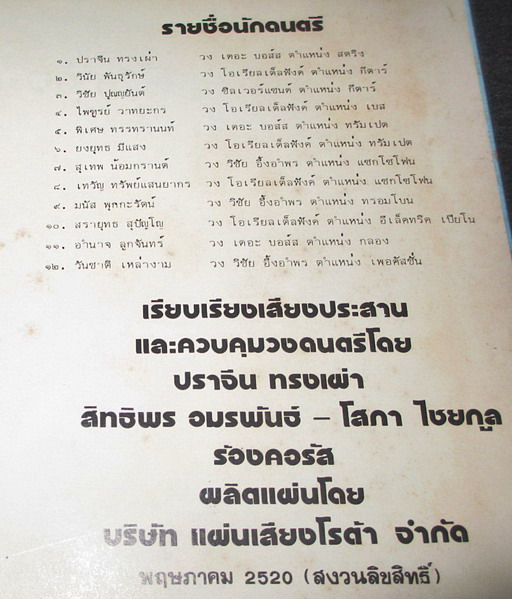 รายชื่อนักดนตรี
๑. ปราจีน ทรงเผ่า วง เดอะ บอส์ส ตำแหน่ง สตริง
๒. วินัย พันธุรักษ์ วง โอเรียลเต็ลฟังค์ ตำแหน่ง กีตาร์
๓. วิชัย ปุญญยันต์ วง ซิลเวอร์แซนด์ ตำแหน่ง กีตาร์
๔. ไพฑูรย์ วาทยะกร วง โอเรียลเต็ลฟังค์ ตำแหน่ง เบส
๕. พิเศษ ทรรทรานนท์ วง เดอะ บอส์ส ตำแหน่ง ทรัมเปต
๖. ยงยุทธ มีแสง วง โอเรียลเต็ลฟังค์ ตำแหน่ง ทรัมเปต
๗. สุเทพ น้อมกรานต์ วง วิชัย อึ้งอำพร ตำแหน่ง แซกโซโฟน
๘. เทวัญ ทรัพย์แสนยากร วง โอเรียลเต็ลฟังค์ ตำแหน่ง แซกโซโฟน
๙. มนัส พุกกะวัตน์ วง วิชัย อึ้งอำพร ตำแหน่ง ทรอมโบน
๑๐. สรายุทธ สุปัญโญ วง โอเรียลเต็ลฟังค์ ตำแหน่ง อีเล็คทริค เปียโน
๑๑. อำนาจ ลูกจันทร์ วง เดอะ บอส์ส ตำแหน่ง กลอง
๑๒. วันชาติ เหล่างาม วง วิชัย อึ้งอำพร ตำแหน่ง เพอคัสชั่น
เรียบเรียงเสียงประสาน
และควบคุมวงดนตรีโดย
ปราจีน ทรงเผ่า
สิทธิพร อมรพันธ์ – โสภา ไชยกูล
ร้องคอรัส
ผลิตแผ่นโดย
บริษัท แผ่นเสียงโรต้า จำกัด
พฤษภาคม 2520 (สงวนลิขสิทธิ์)